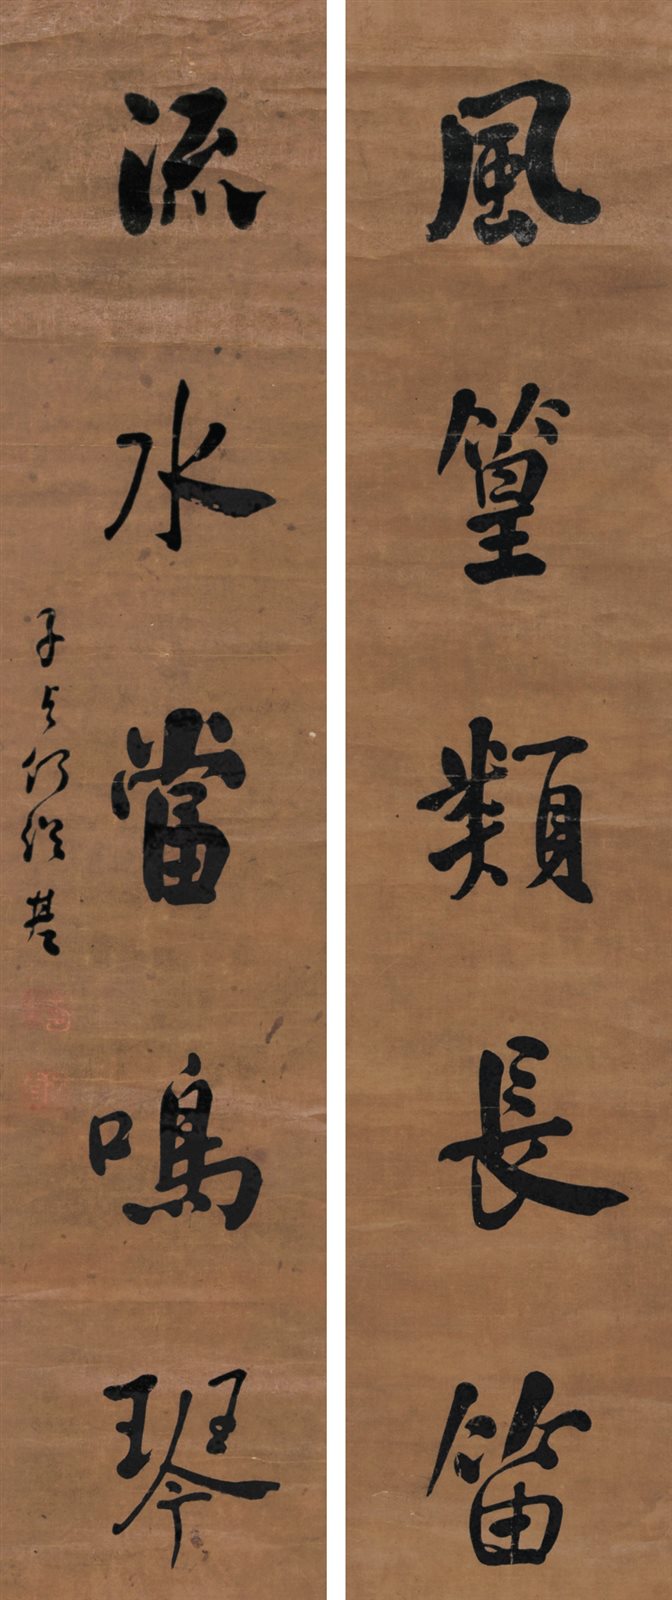 風篁類長笛
流水當鳴琴
子貞何紹基